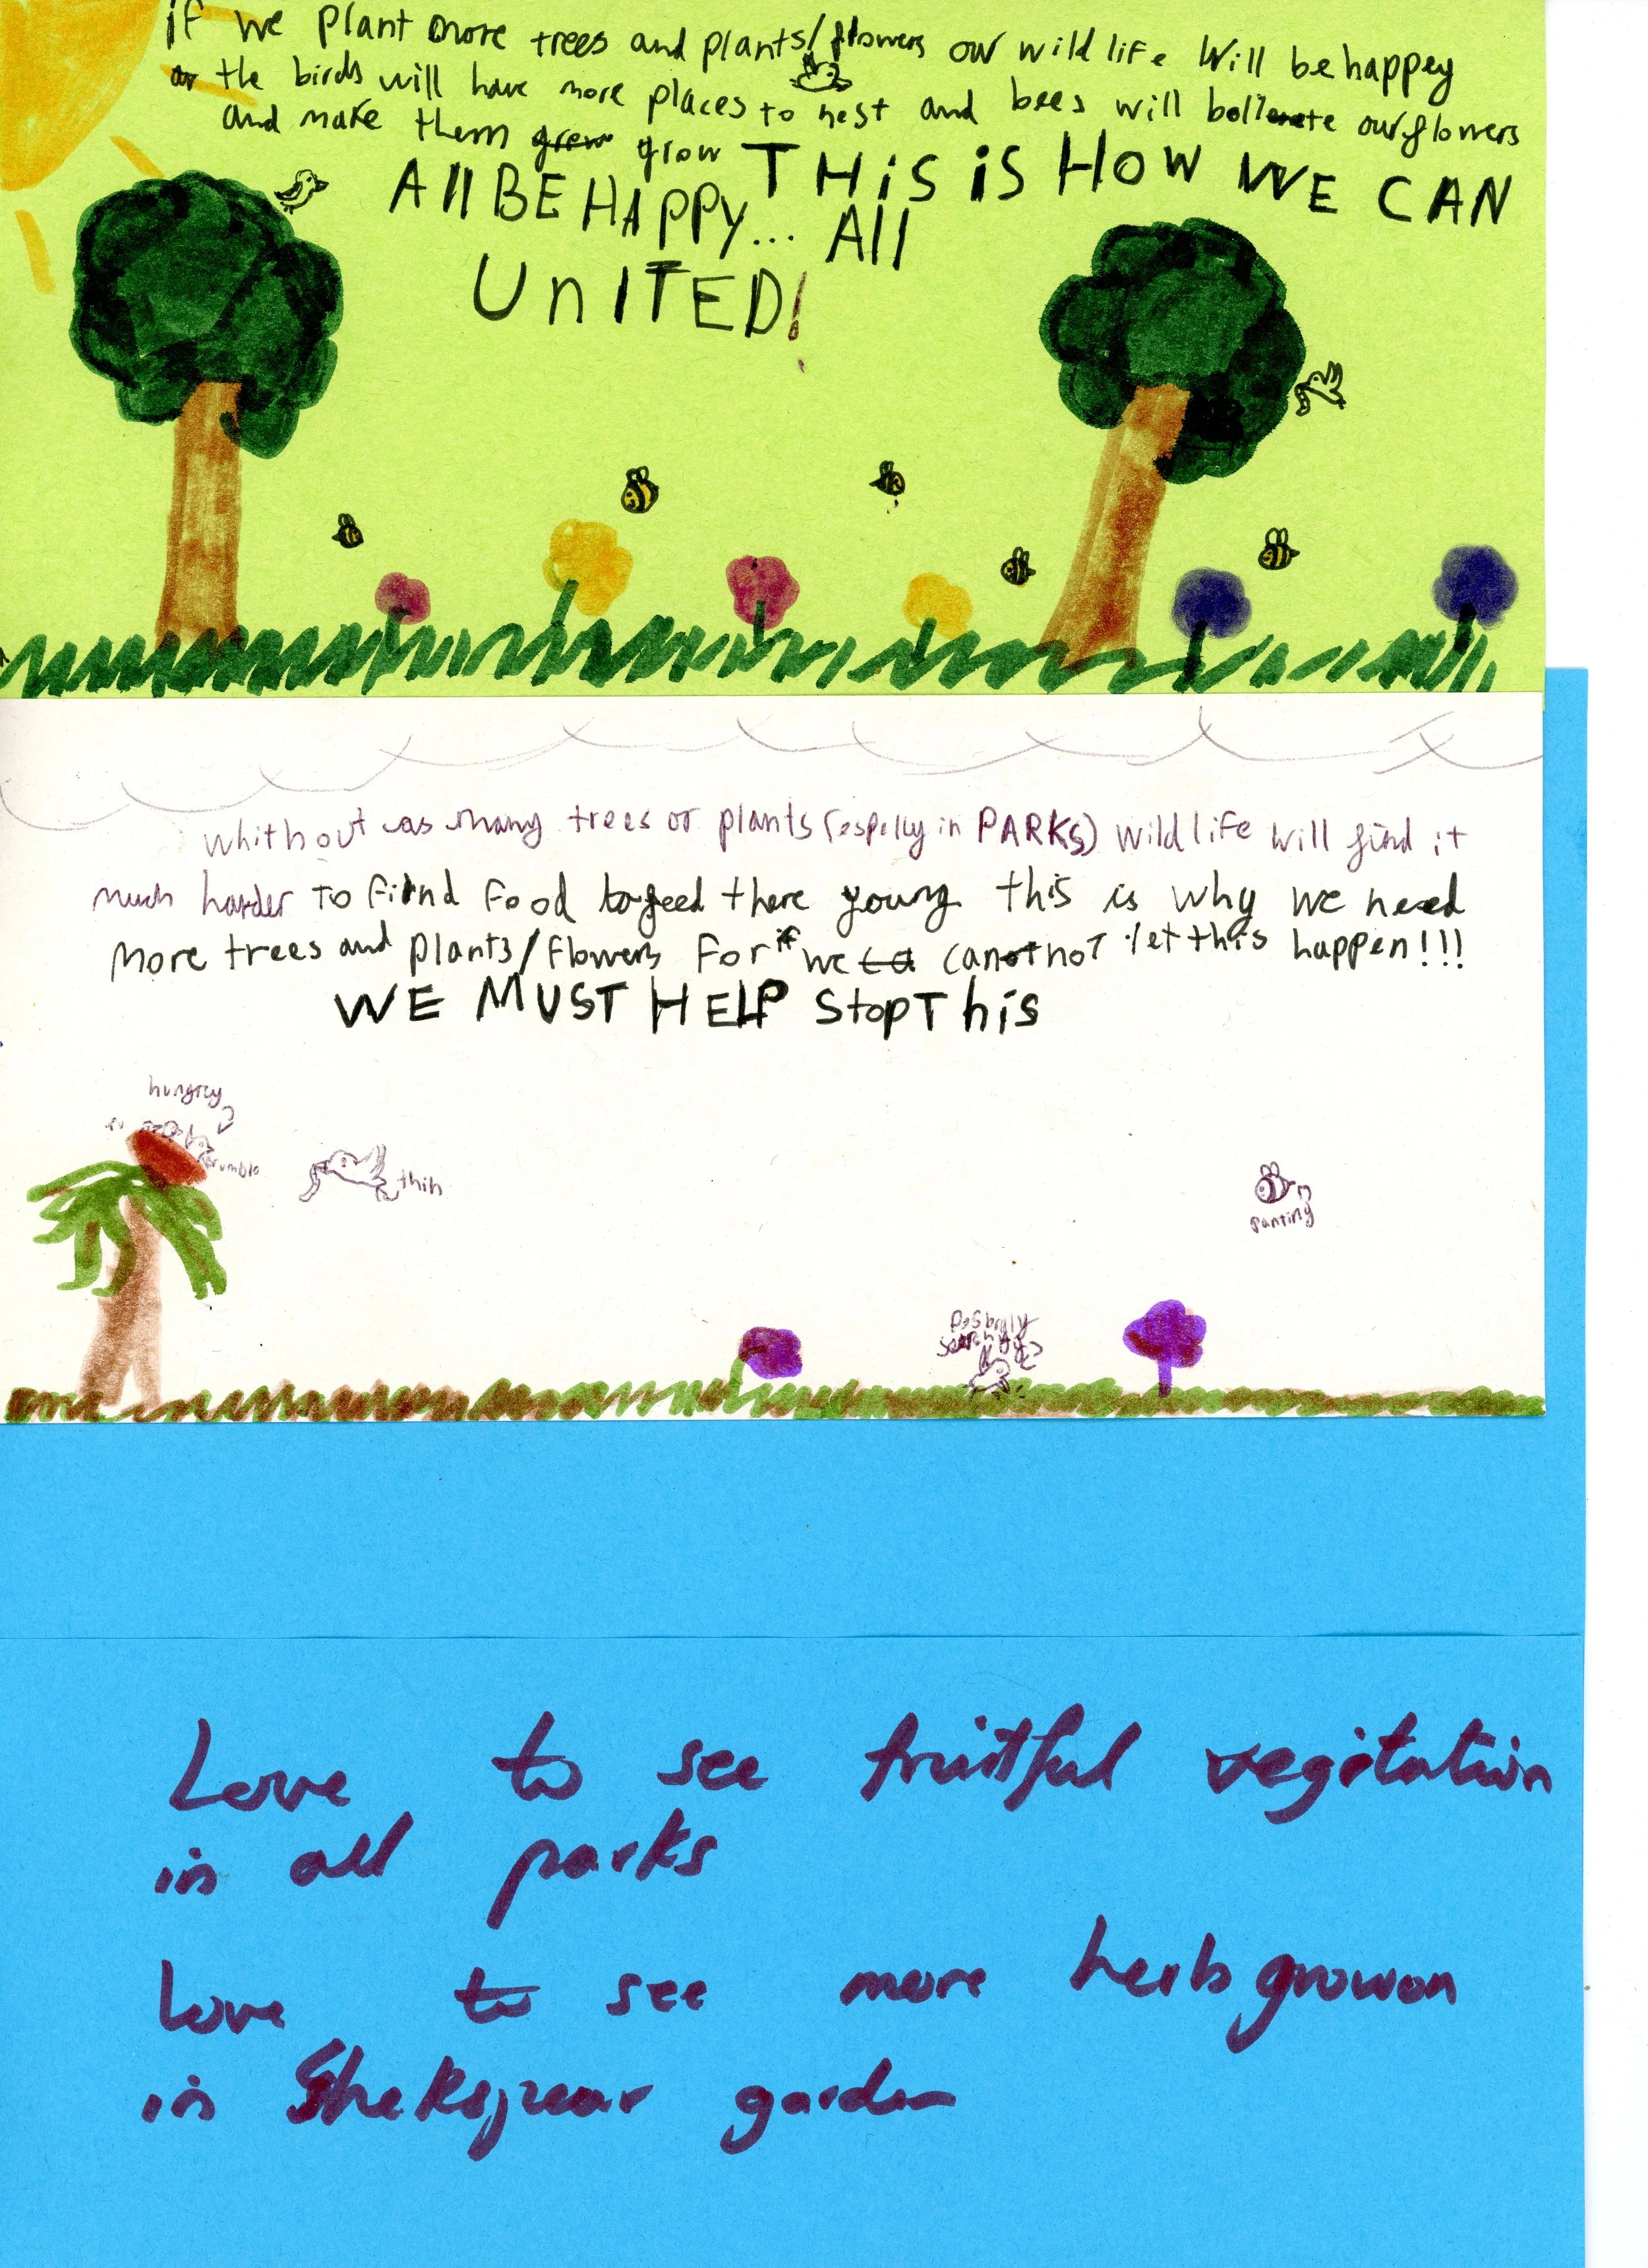 if we plant more trees and plants/flowers our wildlife will be happey
the birds will have more places to nest and bees will bollenete our flowers
and make them grow THiS iS HOW WE CAN
All BE HAPPY... All
UnITED!
whithout as many trees or plants (espelly in PARKS) wildlife will find it
much harder To find food to feed there young this is why we need
more trees and plants/flowers For if we cannot let this happen!!!
WE MUST HELP StopThis
hungrey
thin
panting
Love to see fruitful vegitation
in all parks
Love to see more herb growon
in Shekspear garden